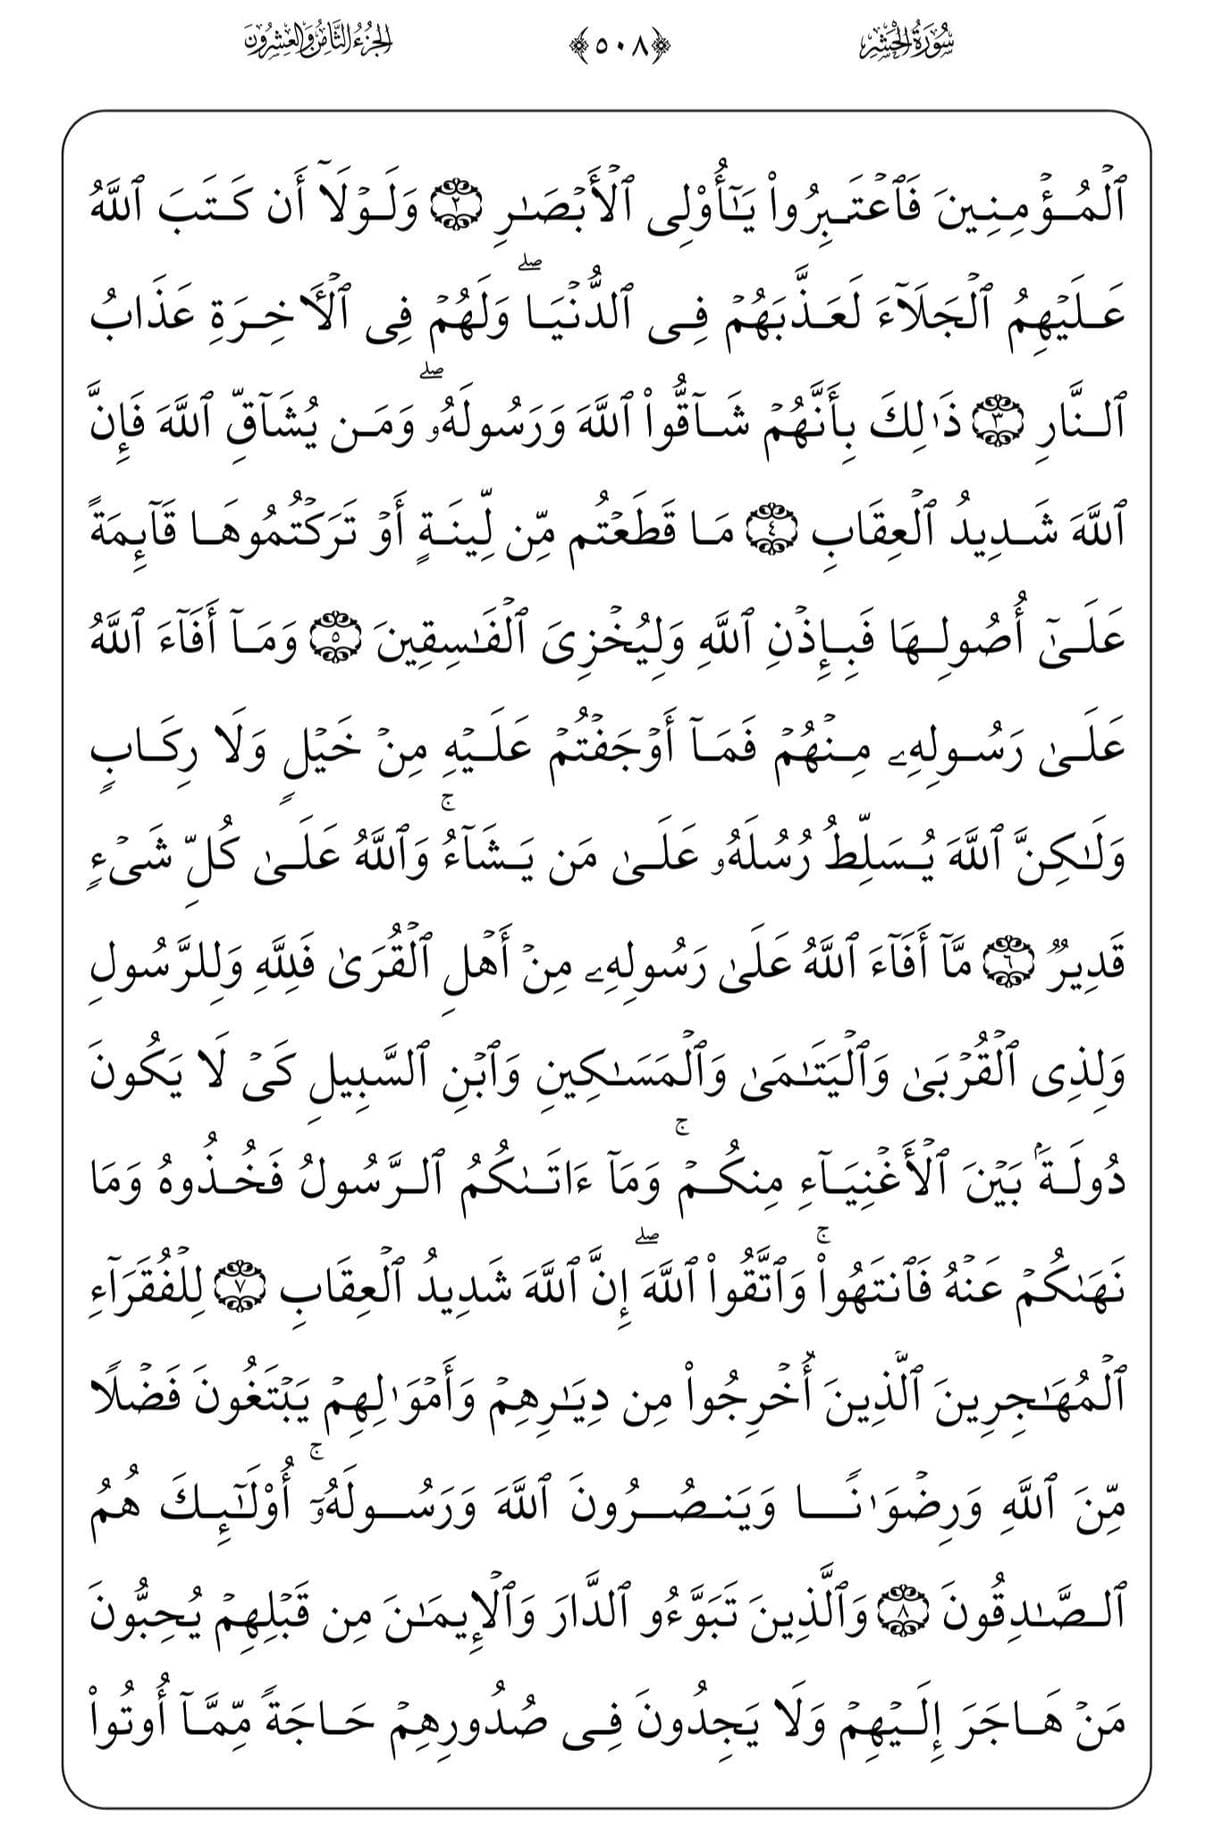 سُورَةُ الْحَشْرِ ﴿٥٠٨﴾ الجُزْءُ الثَّامِنُ وَالعِشْرُونَ
ٱلْمُؤْمِنِينَ فَٱعْتَبِرُوا۟ يَـٰٓأُو۟لِى ٱلْأَبْصَـٰرِ ٢ وَلَوْلَآ أَن كَتَبَ ٱللَّهُ
عَلَيْهِمُ ٱلْجَلَآءَ لَعَذَّبَهُمْ فِى ٱلدُّنْيَا ۖ وَلَهُمْ فِى ٱلْـَٔاخِرَةِ عَذَابُ
ٱلنَّارِ ٣ ذَٰلِكَ بِأَنَّهُمْ شَآقُّوا۟ ٱللَّهَ وَرَسُولَهُۥ ۖ وَمَن يُشَآقِّ ٱللَّهَ فَإِنَّ
ٱللَّهَ شَدِيدُ ٱلْعِقَابِ ٤ مَا قَطَعْتُم مِّن لِّينَةٍ أَوْ تَرَكْتُمُوهَا قَآئِمَةً
عَلَىٰٓ أُصُولِهَا فَبِإِذْنِ ٱللَّهِ وَلِيُخْزِىَ ٱلْفَـٰسِقِينَ ٥ وَمَآ أَفَآءَ ٱللَّهُ
عَلَىٰ رَسُولِهِۦ مِنْهُمْ فَمَآ أَوْجَفْتُمْ عَلَيْهِ مِنْ خَيْلٍ وَلَا رِكَابٍ
وَلَـٰكِنَّ ٱللَّهَ يُسَلِّطُ رُسُلَهُۥ عَلَىٰ مَن يَشَآءُ ۚ وَٱللَّهُ عَلَىٰ كُلِّ شَىْءٍ
قَدِيرٌ ٦ مَّآ أَفَآءَ ٱللَّهُ عَلَىٰ رَسُولِهِۦ مِنْ أَهْلِ ٱلْقُرَىٰ فَلِلَّهِ وَلِلرَّسُولِ
وَلِذِى ٱلْقُرْبَىٰ وَٱلْيَتَـٰمَىٰ وَٱلْمَسَـٰكِينِ وَٱبْنِ ٱلسَّبِيلِ كَىْ لَا يَكُونَ
دُولَةًۢ بَيْنَ ٱلْأَغْنِيَآءِ مِنكُمْ ۚ وَمَآ ءَاتَىٰكُمُ ٱلرَّسُولُ فَخُذُوهُ وَمَا
نَهَىٰكُمْ عَنْهُ فَٱنتَهُوا۟ ۚ وَٱتَّقُوا۟ ٱللَّهَ ۖ إِنَّ ٱللَّهَ شَدِيدُ ٱلْعِقَابِ ٧ لِلْفُقَرَآءِ
ٱلْمُهَـٰجِرِينَ ٱلَّذِينَ أُخْرِجُوا۟ مِن دِيَـٰرِهِمْ وَأَمْوَٰلِهِمْ يَبْتَغُونَ فَضْلًا
مِّنَ ٱللَّهِ وَرِضْوَٰنًا وَيَنصُرُونَ ٱللَّهَ وَرَسُولَهُۥٓ ۚ أُو۟لَـٰٓئِكَ هُمُ
ٱلصَّـٰدِقُونَ ٨ وَٱلَّذِينَ تَبَوَّءُو ٱلدَّارَ وَٱلْإِيمَـٰنَ مِن قَبْلِهِمْ يُحِبُّونَ
مَنْ هَاجَرَ إِلَيْهِمْ وَلَا يَجِدُونَ فِى صُدُورِهِمْ حَاجَةً مِّمَّآ أُوتُوا۟